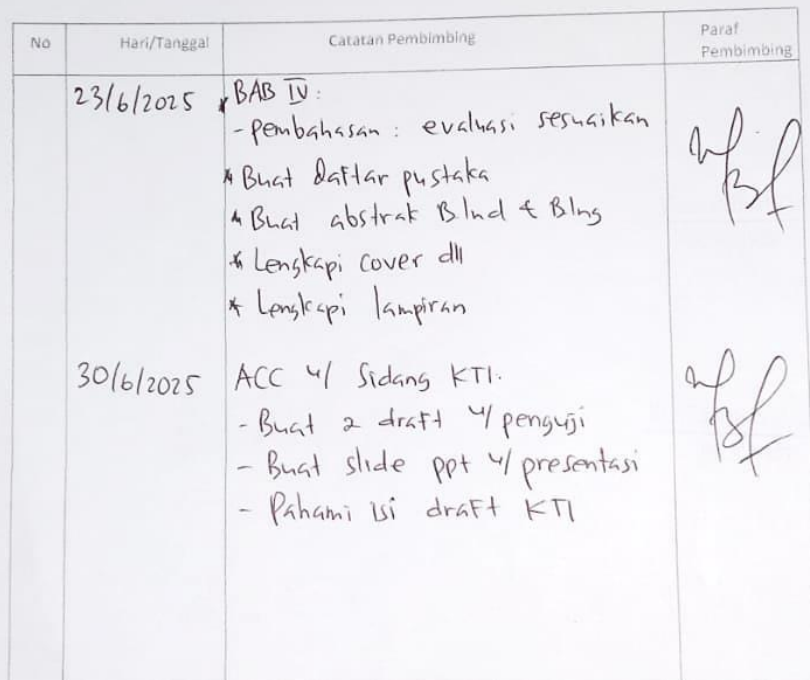 No Hari/Tanggal Catatan Pembimbing Paraf Pembimbing
23/6/2025 * BAB IV :
- pembahasan : evaluasi sesuaikan
* Buat daftar pustaka
* Buat abstrak B.Ind & BIng
* Lengkapi cover dll
* Lengkapi lampiran
30/6/2025 ACC u/ Sidang KTI.
- Buat 2 draft u/ penguji
- Buat slide ppt u/ presentasi
- Pahami isi draft KTI